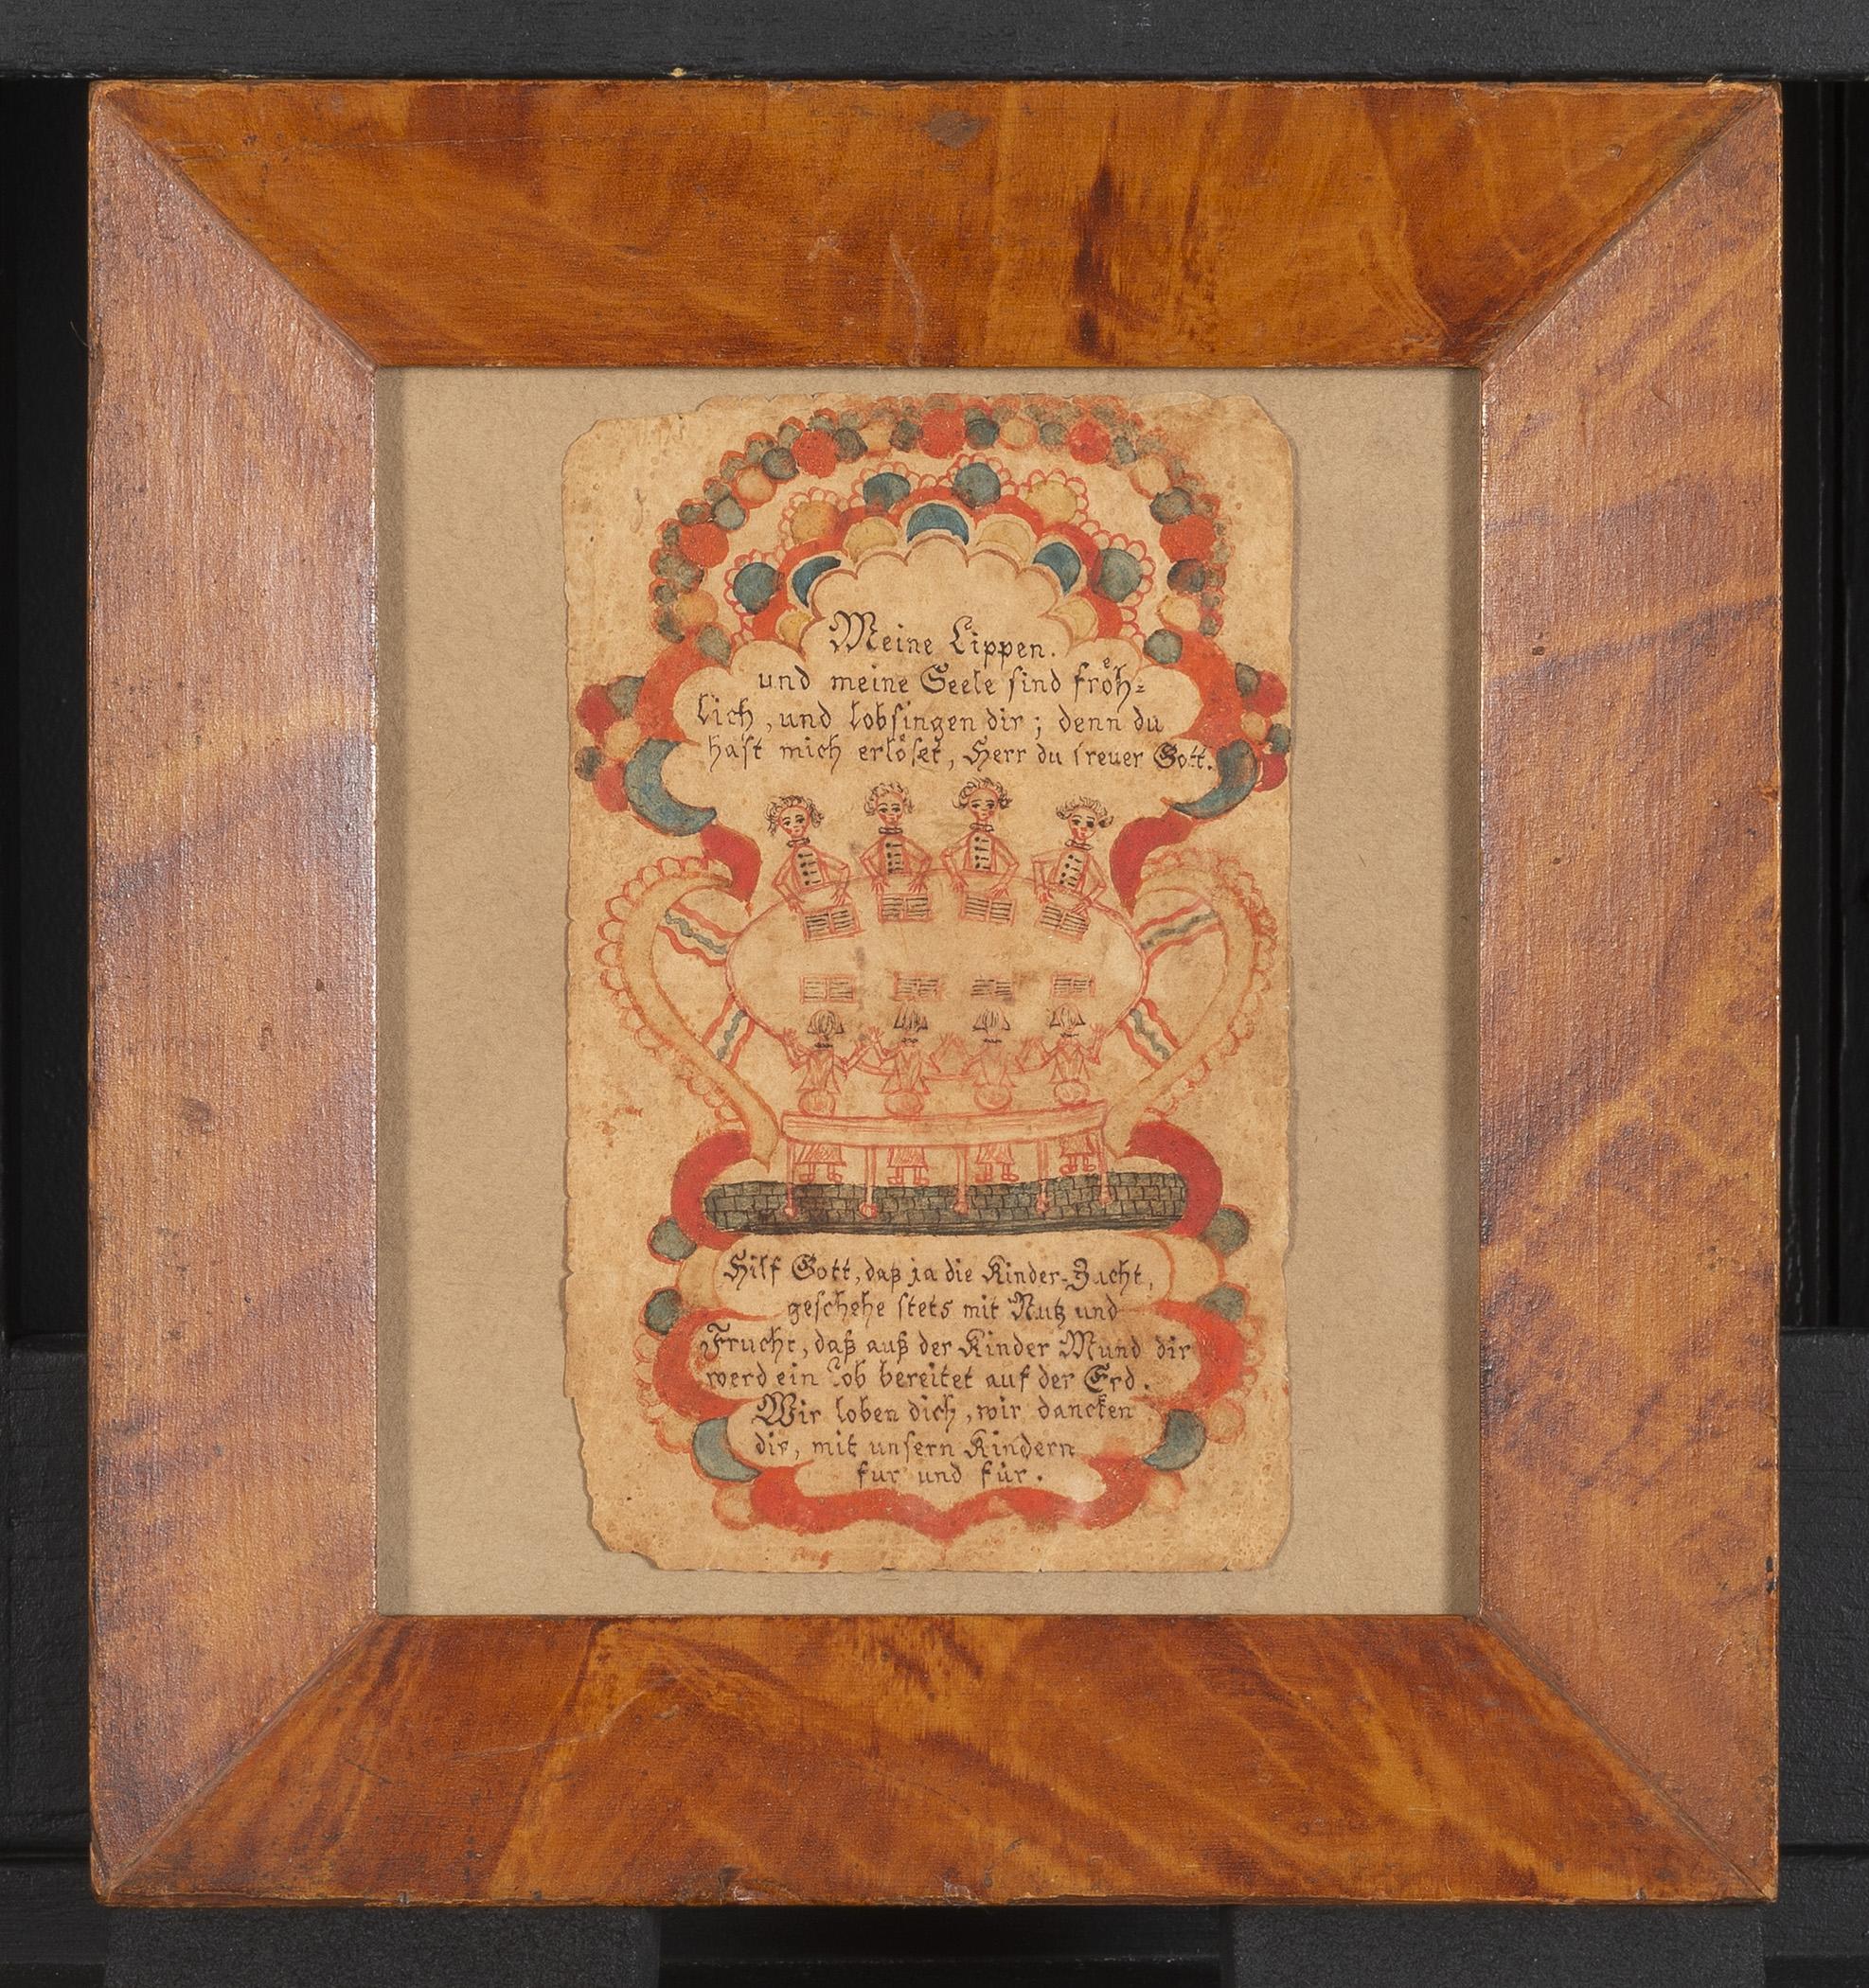 Meine Lippen.
und meine Seele sind froͤh⸗
lich, und lobsingen dir; denn du
hast mich erloͤset, Herr du treuer Gott.
Hilf Gott, daß ja die Kinder-Zucht,
geschehe stets mit Nutz und
Frucht, daß auß der Kinder Mund dir
werd ein Lob bereitet auf der Erd.
Wir loben dich, wir dancken
dir, mit unsern Kindern
fur und fuͤr.